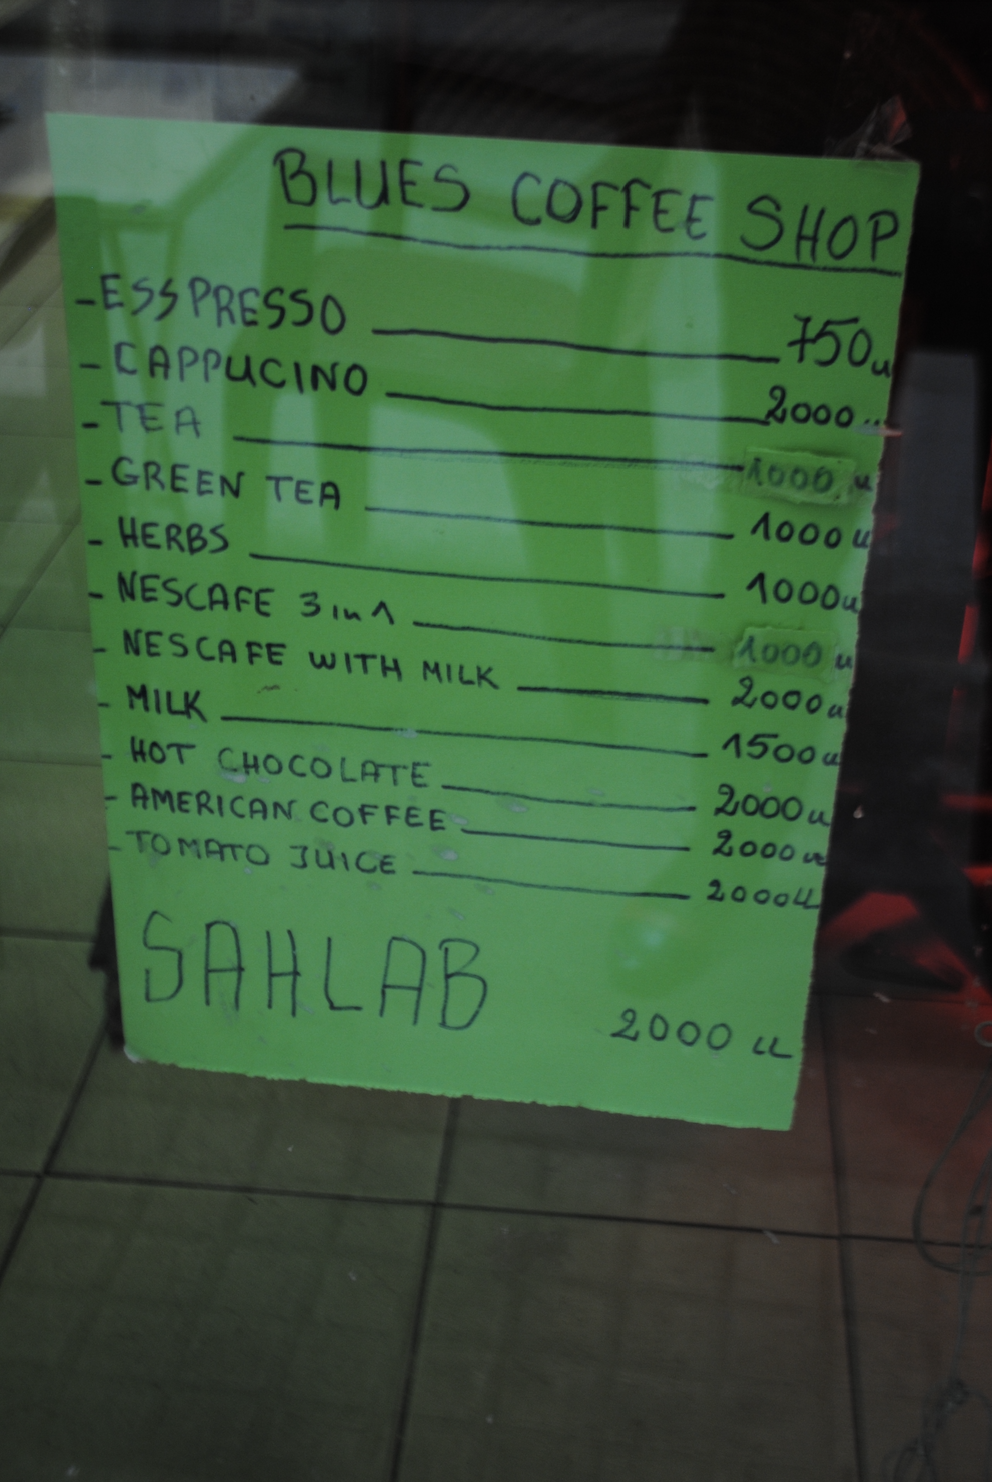 BLUES COFFEE SHOP
- ESSPRESSO 750 LL
- CAPPUCINO 2000 LL
- TEA 1000 LL
- GREEN TEA 1000 LL
- HERBS 1000 LL
- NESCAFE 3 in 1 1000 LL
- NESCAFE WITH MILK 2000 LL
- MILK 1500 LL
- HOT CHOCOLATE 2000 LL
- AMERICAN COFFEE 2000 LL
- TOMATO JUICE 2000 LL
SAHLAB 2000 LL